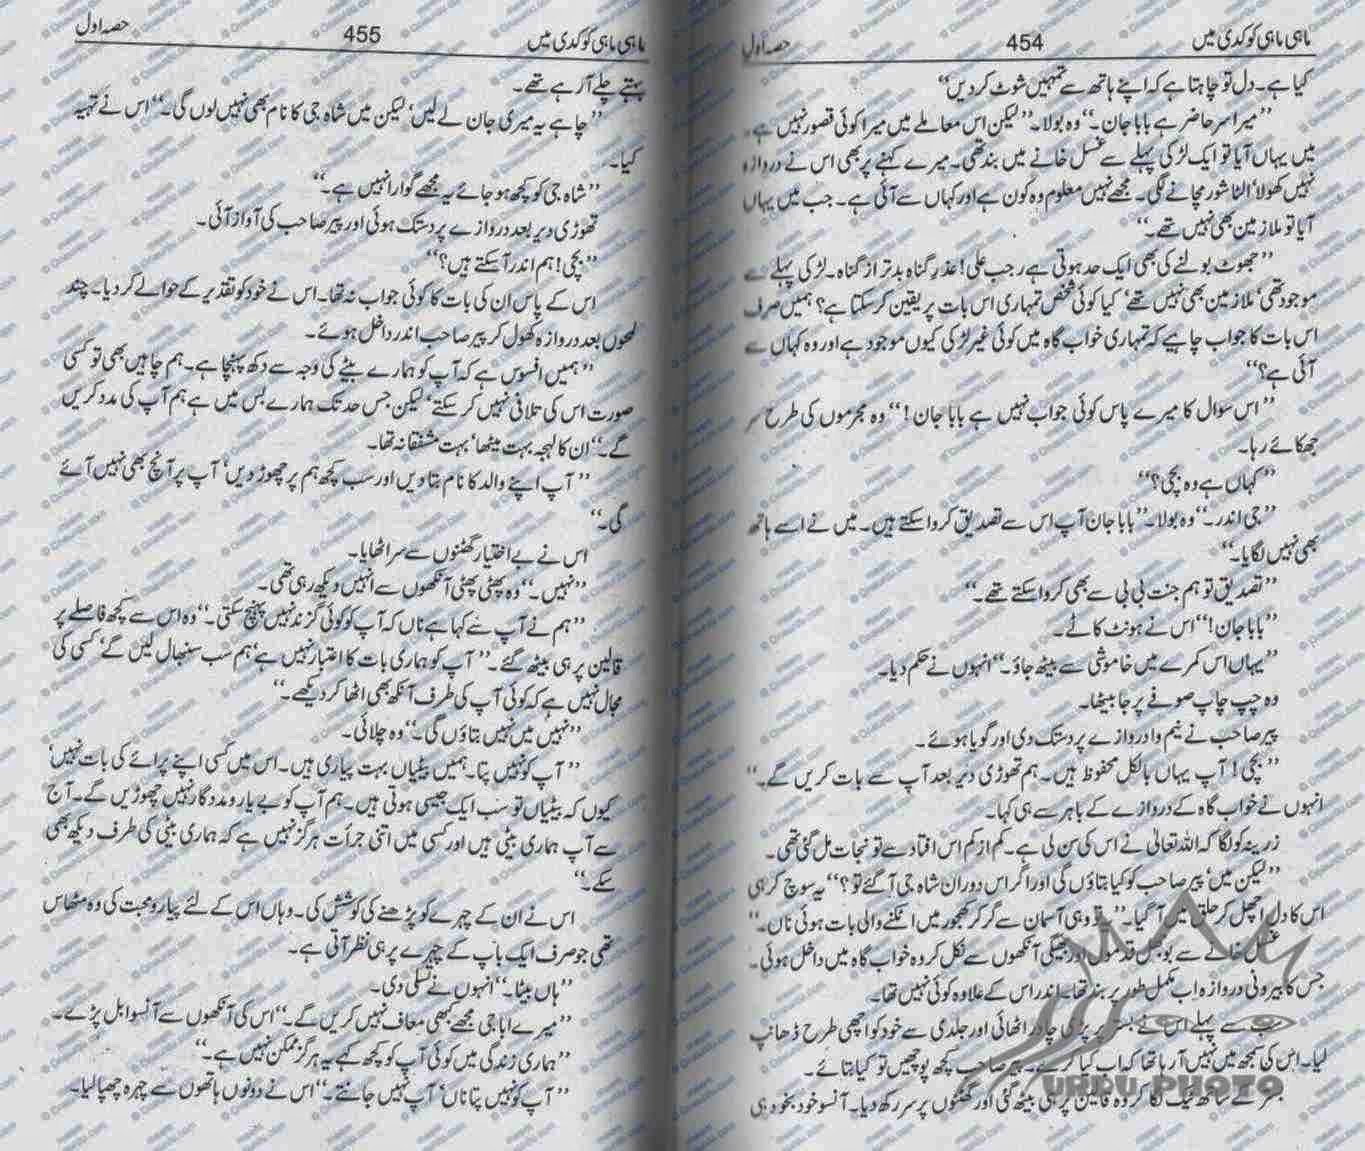 ماہی ماہی کوکدی میں 454 حصہ اول
کیا ہے۔ دل تو چاہتا ہے کہ اپنے ہاتھ سے تمہیں شوٹ کر دیں‘‘
’’میرا سر حاضر ہے بابا جان۔‘‘ وہ بولا۔ ’’لیکن اس معاملے میں میرا کوئی قصور نہیں ہے۔
میں یہاں آیا تو ایک لڑکی پہلے سے غسل خانے میں بند تھی۔ میرے کہنے پر بھی اس نے دروازہ
نہیں کھولا‘ الٹا شور مچانے لگی۔ مجھے نہیں معلوم وہ کون ہے اور کہاں سے آئی ہے۔ جب میں یہاں
آیا تو ملازمین بھی نہیں تھے۔‘‘
’’جھوٹ بولنے کی بھی ایک حد ہوتی ہے رجب علی! عذر گناہ بدتر از گناہ۔ لڑکی پہلے سے
موجود تھی‘ ملازمین بھی نہیں تھے‘ کیا کوئی شخص تمہاری اس بات پر یقین کر سکتا ہے؟ ہمیں صرف
اس بات کا جواب چاہیے کہ تمہاری خواب گاہ میں کوئی غیر لڑکی کیوں موجود ہے اور وہ کہاں سے
آئی ہے؟‘‘
’’اس سوال کا میرے پاس کوئی جواب نہیں ہے بابا جان!‘‘ وہ مجرموں کی طرح سر
جھکائے رہا۔
’’کہاں ہے وہ بچی؟‘‘
’’جی اندر۔‘‘ وہ بولا۔ ’’بابا جان آپ اس سے تصدیق کروا سکتے ہیں۔ میں نے اسے ہاتھ
بھی نہیں لگایا۔‘‘
’’تصدیق تو ہم جنت بی بی سے بھی کروا سکتے تھے۔‘‘
’’بابا جان!‘‘ اس نے ہونٹ کاٹے۔
’’یہاں اس کمرے میں خاموشی سے بیٹھ جاؤ۔‘‘ انہوں نے حکم دیا۔
وہ چپ چاپ صوفے پر جا بیٹھا۔
پیر صاحب نے نیم وا دروازے پر دستک دی اور گویا ہوئے۔
’’بچی! آپ یہاں بالکل محفوظ ہیں۔ ہم تھوڑی دیر بعد آپ سے بات کریں گے۔‘‘
انہوں نے خواب گاہ کے دروازے کے باہر سے ہی کہا۔
زرینہ کو لگا کہ اللہ تعالیٰ نے اس کی سن لی ہے۔ کم از کم اس افتاد سے تو نجات مل گئی تھی۔
’’لیکن میں‘ پیر صاحب کو کیا بتاؤں گی اور اگر اس دوران شاہ جی آ گئے تو؟‘‘ یہ سوچ کر ہی
اس کا دل اچھل کر حلق میں آ گیا۔ ’’یہ تو وہی آسمان سے گر کر کھجور میں اٹکنے والی بات ہوئی ناں۔‘‘
غسل خانے سے بوجھل قدموں اور بھیگی آنکھوں سے نکل کر وہ خواب گاہ میں داخل ہوئی۔
جس کا بیرونی دروازہ اب مکمل طور پر بند تھا۔ اندر اس کے علاوہ کوئی نہیں تھا۔
سب سے پہلے اس نے بستر پر پڑی چادر اٹھائی اور جلدی سے خود کو اچھی طرح ڈھانپ
لیا۔ اس کی سمجھ میں نہیں آ رہا تھا کہ اب کیا کرے۔ پیر صاحب کچھ پوچھیں تو کیا بتائے۔
بستر کے ساتھ ٹیک لگا کر وہ قالین پر ہی بیٹھ گئی اور گھٹنوں پر سر رکھ دیا۔ آنسو خود بخود ہی
URDU PHOTO
ماہی ماہی کوکدی میں 455 حصہ اول
بہتے چلے آ رہے تھے۔
’’چاہے یہ میری جان لے لیں‘ لیکن میں شاہ جی کا نام بھی نہیں لوں گی۔‘‘ اس نے تہیہ
کیا۔
’’شاہ جی کو کچھ ہو جائے یہ مجھے گوارا نہیں ہے۔‘‘
تھوڑی دیر بعد دروازے پر دستک ہوئی اور پیر صاحب کی آواز آئی۔
’’بچی! ہم اندر آ سکتے ہیں؟‘‘
اس کے پاس ان کی بات کا کوئی جواب نہ تھا۔ اس نے خود کو تقدیر کے حوالے کر دیا۔ چند
لمحوں بعد دروازہ کھول کر پیر صاحب اندر داخل ہوئے۔
’’ہمیں افسوس ہے کہ آپ کو ہمارے بیٹے کی وجہ سے دکھ پہنچا ہے۔ ہم چاہیں بھی تو کسی
صورت اس کی تلافی نہیں کر سکتے‘ لیکن جس حد تک ہمارے بس میں ہے ہم آپ کی مدد کریں
گے۔‘‘ ان کا لہجہ بہت میٹھا‘ بہت مشفقانہ تھا۔
’’آپ اپنے والد کا نام بتا دیں اور سب کچھ ہم پر چھوڑ دیں‘ آپ پر آنچ بھی نہیں آئے
گی۔‘‘
اس نے بے اختیار گھٹنوں سے سر اٹھایا۔
’’نہیں۔‘‘ وہ پھٹی پھٹی آنکھوں سے انہیں دیکھ رہی تھی۔
’’ہم نے آپ سے کہا ہے ناں کہ آپ کو کوئی گزند نہیں پہنچ سکتی۔‘‘ وہ اس سے کچھ فاصلے پر
قالین پر ہی بیٹھ گئے۔ ’’آپ کو ہماری بات کا اعتبار نہیں ہے‘ ہم سب سنبھال لیں گے‘ کسی کی
مجال نہیں ہے کہ کوئی آپ کی طرف آنکھ بھی اٹھا کر دیکھے۔‘‘
’’نہیں میں نہیں بتاؤں گی۔‘‘ وہ چلائی۔
’’آپ کو نہیں پتا۔ ہمیں بیٹیاں بہت پیاری ہیں۔ اس میں کسی اپنے پرائے کی بات نہیں‘
کیوں کہ بیٹیاں تو سب ایک جیسی ہوتی ہیں۔ ہم آپ کو بے یار و مددگار نہیں چھوڑیں گے۔ آج
سے آپ ہماری بیٹی ہیں اور کسی میں اتنی جرأت ہرگز نہیں ہے کہ ہماری بیٹی کی طرف دیکھ بھی
سکے۔‘‘
اس نے ان کے چہرے کو پڑھنے کی کوشش کی۔ وہاں اس کے لئے پیار و محبت کی وہ مٹھاس
تھی جو صرف ایک باپ کے چہرے پر ہی نظر آتی ہے۔
’’ہاں بیٹا۔‘‘ انہوں نے تسلی دی۔
’’میرے ابا جی مجھے کبھی معاف نہیں کریں گے۔‘‘ اس کی آنکھوں سے آنسو ابل پڑے۔
’’ہماری زندگی میں کوئی آپ کو کچھ کہے یہ ہرگز ممکن نہیں ہے۔‘‘
’’آپ کو نہیں پتا ناں‘ آپ نہیں جانتے۔‘‘ اس نے دونوں ہاتھوں سے چہرہ چھپا لیا۔